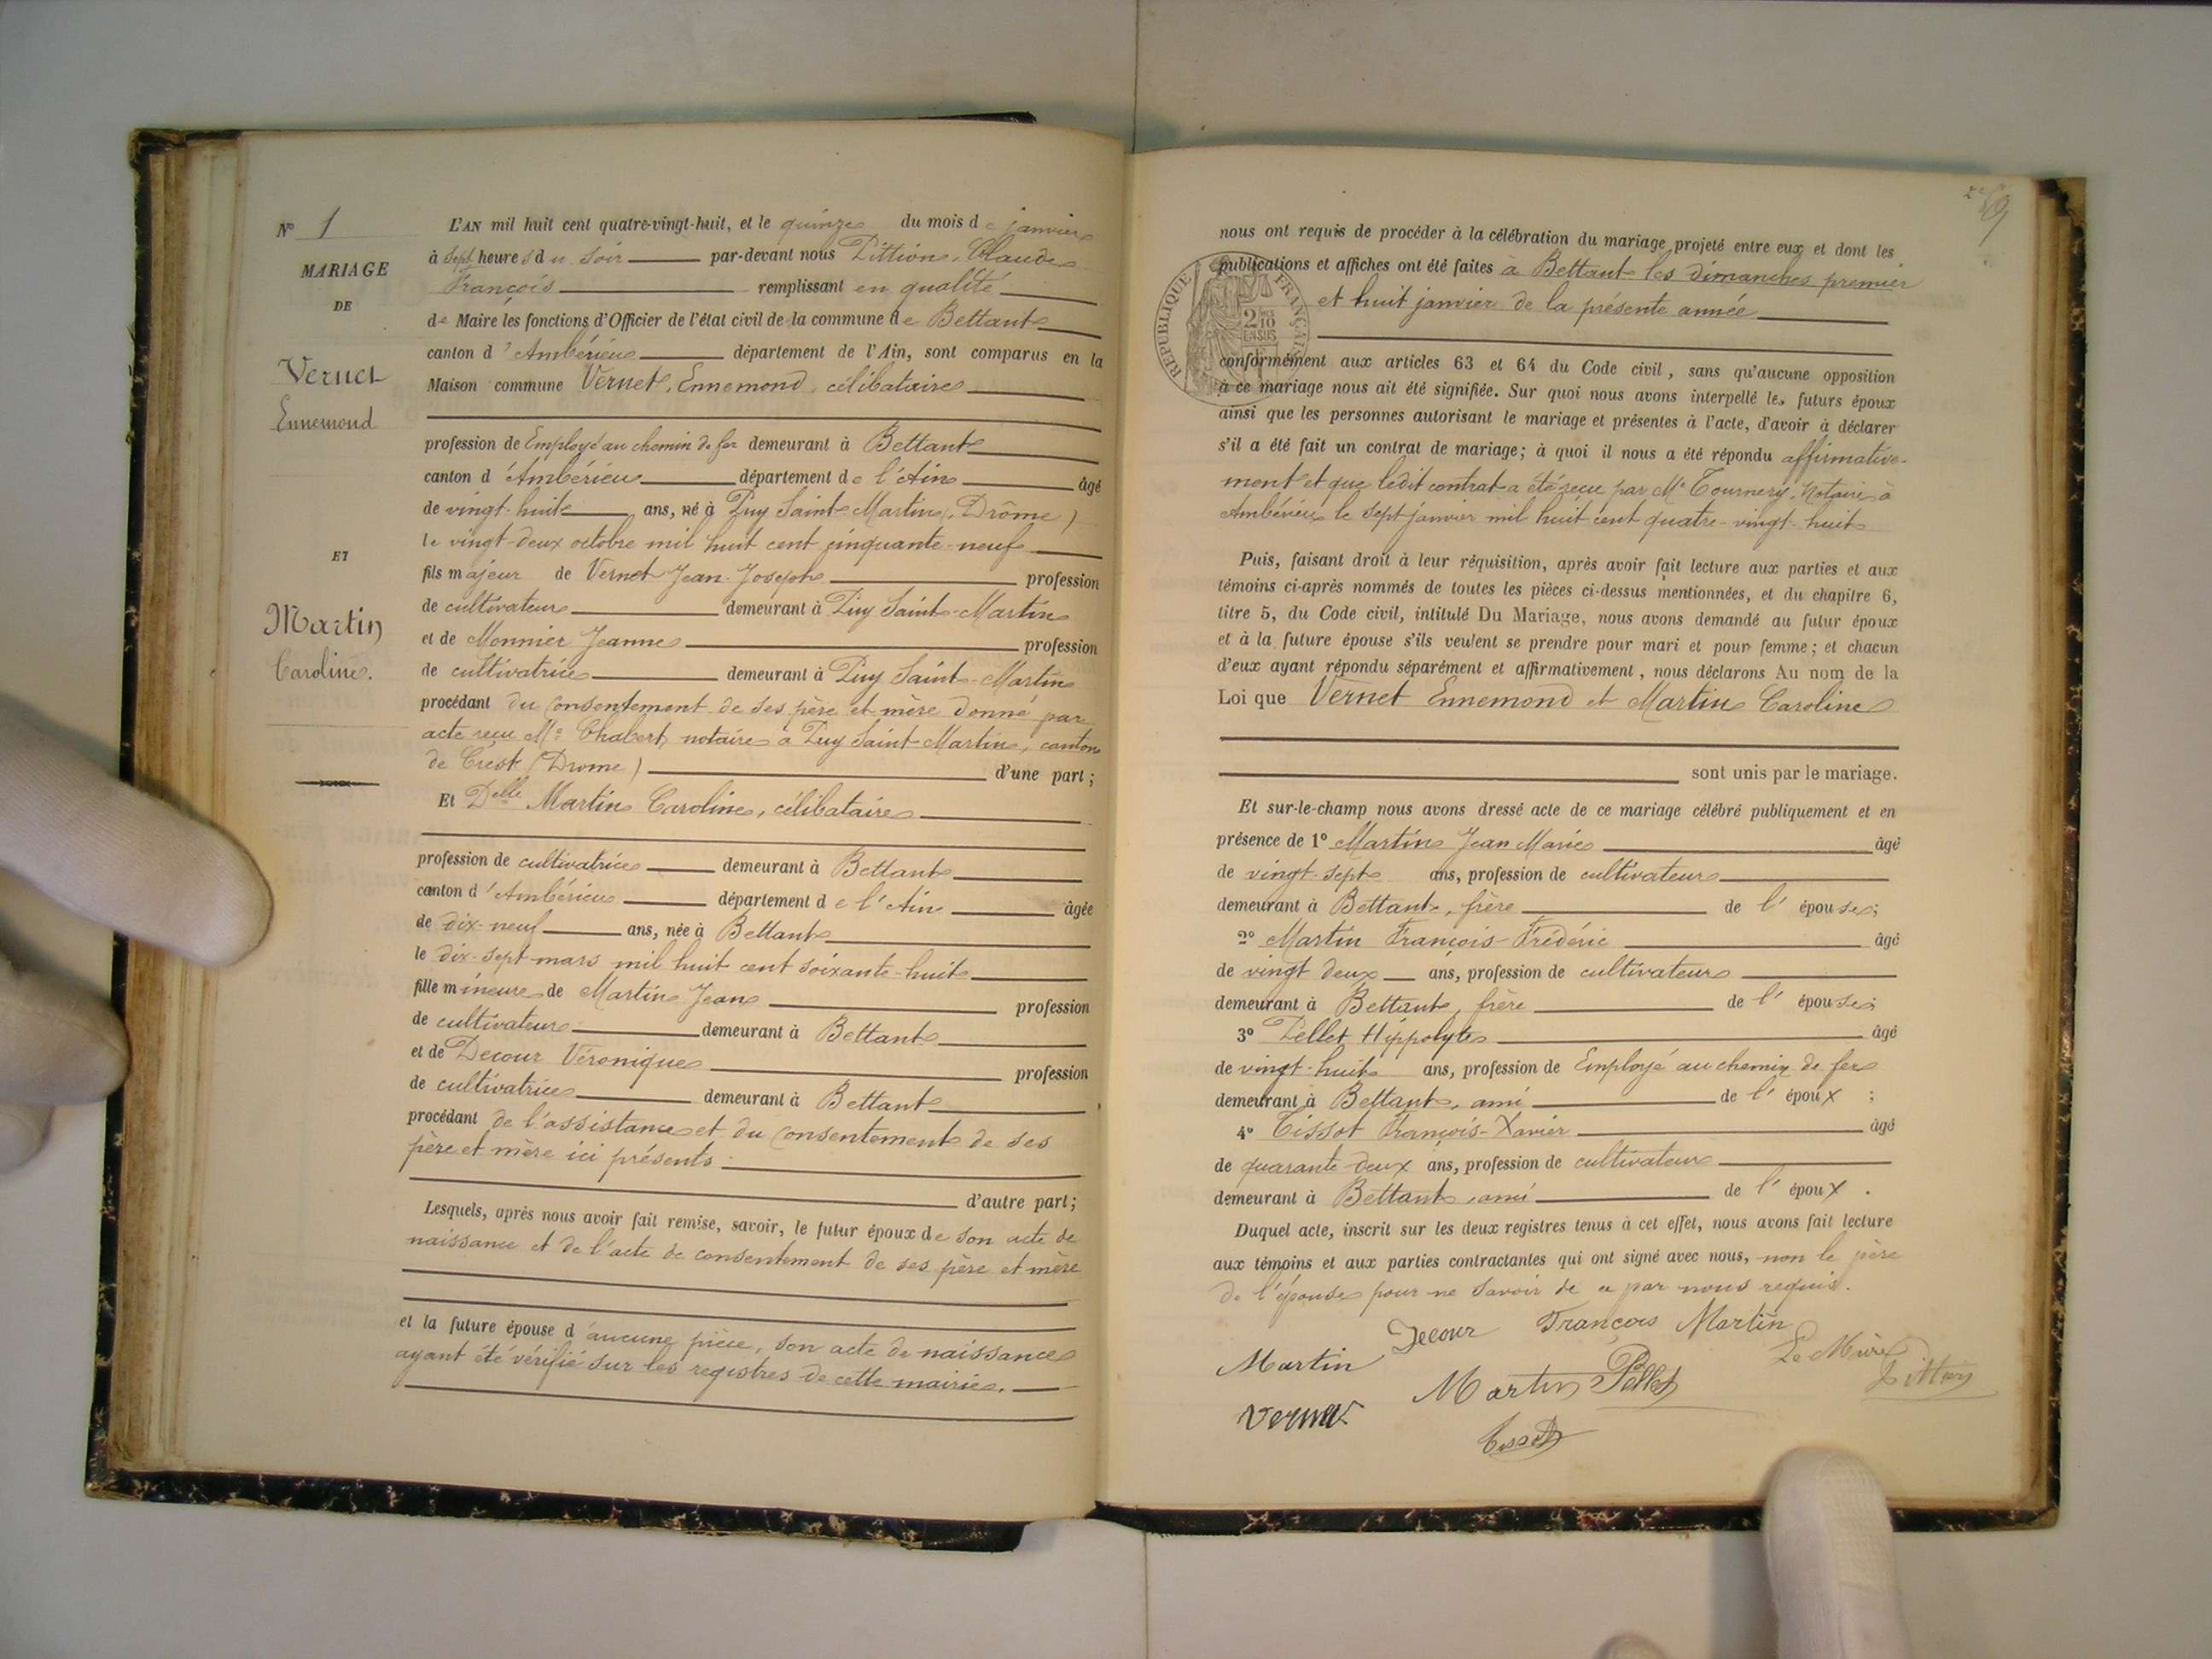 N° 1
MARIAGE
DE
Vernet
Ennemond
ET
Martin
Caroline.
L'AN mil huit cent quatre-vingt-huit, et le quinze du mois de janvier
à sept heures du soir par-devant nous Pittion, Claude
François remplissant en qualité
de Maire les fonctions d'Officier de l'état civil de la commune de Bettant
canton d'Ambérieu département de l'Ain, sont comparus en la
Maison commune Vernet, Ennemond, célibataire
profession de Employé au chemin de fer demeurant à Bettant
canton d'Ambérieu département de l'Ain âgé
de vingt-huit ans, né à Puy Saint-Martin (Drôme)
le vingt-deux octobre mil huit cent cinquante-neuf
fils majeur de Vernet Jean-Joseph profession
de cultivateur demeurant à Puy Saint-Martin
et de Monnier Jeanne profession
de cultivatrice demeurant à Puy Saint-Martin
procédant du consentement de ses père et mère donné par
acte reçu Me Chabert, notaire à Puy Saint-Martin, canton
de Crest (Drome) d'une part ;
Et Delle Martin Caroline, célibataire
profession de cultivatrice demeurant à Bettant
canton d'Ambérieu département de l'Ain âgée
de dix-neuf ans, née à Bettant
le dix-sept mars mil huit cent soixante-huit
fille mineure de Martin Jean profession
de cultivateur demeurant à Bettant
et de Decour Véronique profession
de cultivatrice demeurant à Bettant
procédant de l'assistance et du consentement de ses
père et mère ici présents
d'autre part ;
Lesquels, après nous avoir fait remise, savoir, le futur époux de son acte de
naissance et de l'acte de consentement de ses père et mère
et la future épouse d'aucune pièce, son acte de naissance
ayant été vérifié sur les registres de cette mairie.
nous ont requis de procéder à la célébration du mariage projeté entre eux et dont les
publications et affiches ont été faites à Bettant les dimanches premier
et huit janvier de la présente année
RÉPUBLIQUE FRANÇAISE
2/10 EN SUS
conformément aux articles 63 et 64 du Code civil, sans qu'aucune opposition
à ce mariage nous ait été signifiée. Sur quoi nous avons interpellé les futurs époux
ainsi que les personnes autorisant le mariage et présentes à l'acte, d'avoir à déclarer
s'il a été fait un contrat de mariage ; à quoi il nous a été répondu affirmative-
ment et que ledit contrat a été reçu par Me Tournery, Notaire à
Ambérieu le sept janvier mil huit cent quatre-vingt-huit
Puis, faisant droit à leur réquisition, après avoir fait lecture aux parties et aux
témoins ci-après nommés de toutes les pièces ci-dessus mentionnées, et du chapitre 6,
titre 5, du Code civil, intitulé Du Mariage, nous avons demandé au futur époux
et à la future épouse s'ils veulent se prendre pour mari et pour femme ; et chacun
d'eux ayant répondu séparément et affirmativement, nous déclarons Au nom de la
Loi que Vernet Ennemond et Martin Caroline
sont unis par le mariage.
Et sur-le-champ nous avons dressé acte de ce mariage célébré publiquement et en
présence de 1° Martin Jean Marie âgé
de vingt-sept ans, profession de cultivateur
demeurant à Bettant, frère de l'épouse ;
2° Martin François-Frédéric âgé
de vingt deux ans, profession de cultivateur
demeurant à Bettant, frère de l'épouse ;
3° Pellet Hippolyte âgé
de vingt-huit ans, profession de Employé au chemin de fer
demeurant à Bettant, ami de l'époux ;
4° Tissot François-Xavier âgé
de quarante-deux ans, profession de cultivateur
demeurant à Bettant, ami de l'époux.
Duquel acte, inscrit sur les deux registres tenus à cet effet, nous avons fait lecture
aux témoins et aux parties contractantes qui ont signé avec nous, non le père
de l'épouse pour ne savoir de ce par nous requis.
Decour François Martin
Martin Martin Pellet Le Maire
Pittion
Vernet
Tissot